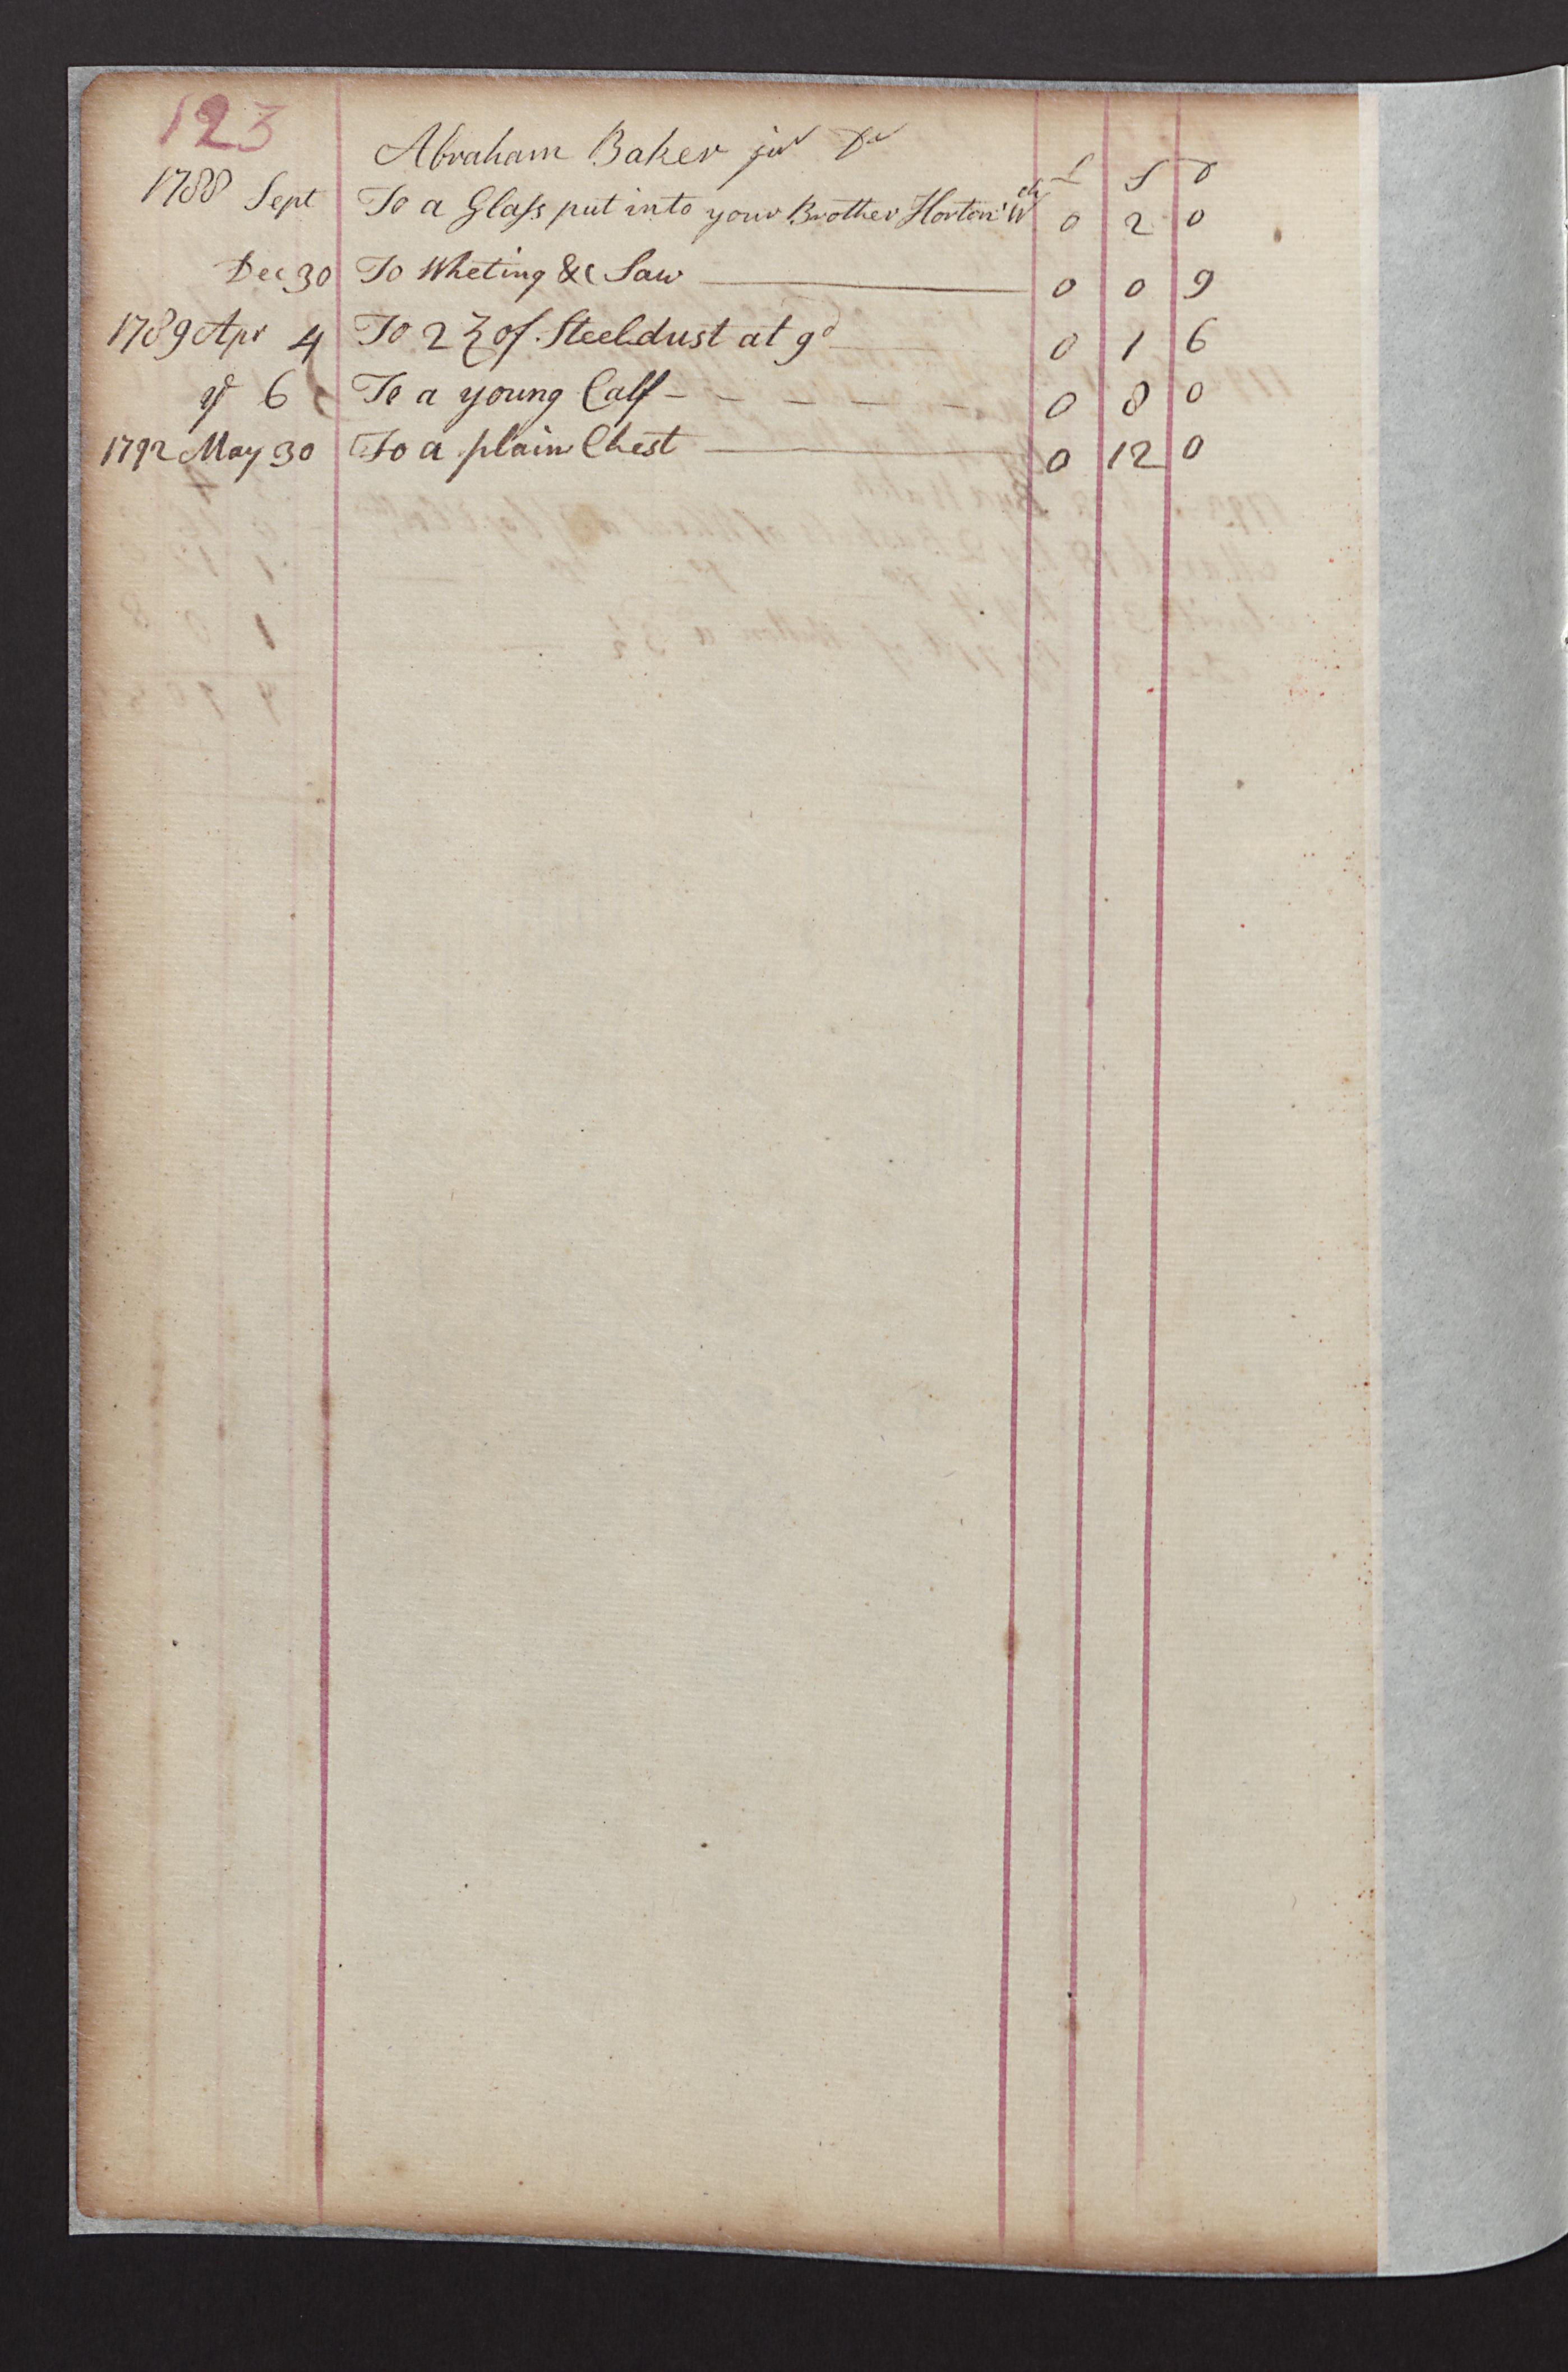 123
Abraham Baker jur Dr
£ S D
1788 Sept To a Glaſs put into your Brother Horton' Wch 0 2 0
Dec 30 To Wheting &c Saw 0 0 9
1789 Apr 4 To 2 ℥ of Steeldust at 9d 0 1 6
6 To a young Calf - - - - - - 0 8 0
1792 May 30 To a plain Chest 0 12 0